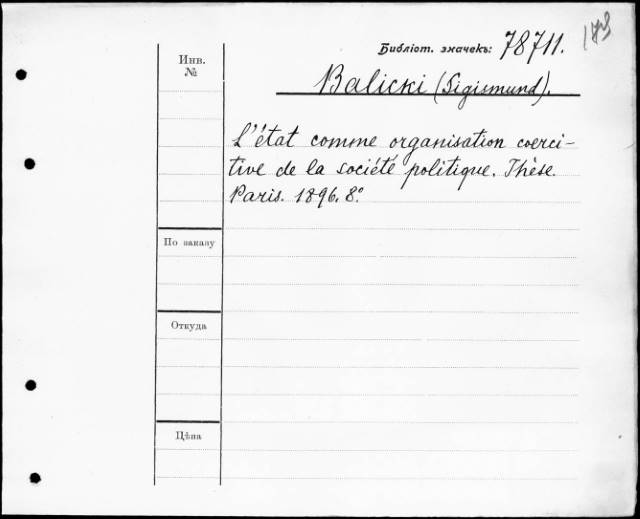 Библіот. значекъ: 78711.
Инв.
№
Balicki (Sigismund).
L'état comme organisation coerci-
tive de la société politique. Thèse.
Paris. 1896. 8º
По заказу
Откуда
Цѣна